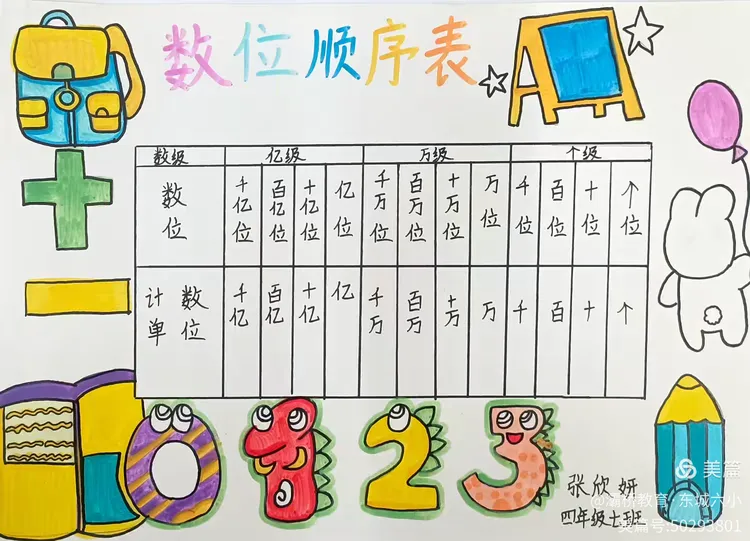 数位顺序表
数级 亿级 万级 个级
数位 千亿位 百亿位 十亿位 亿位 千万位 百万位 十万位 万位 千位 百位 十位 个位
计数单位 千亿 百亿 十亿 亿 千万 百万 十万 万 千 百 十 个
0 1 2 3
张欣妍
四年级七班
美篇
@灞桥教育·东城六小
美篇号:50293801